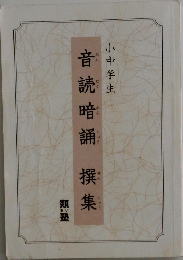 小中学生
音読暗誦 撰集
類塾